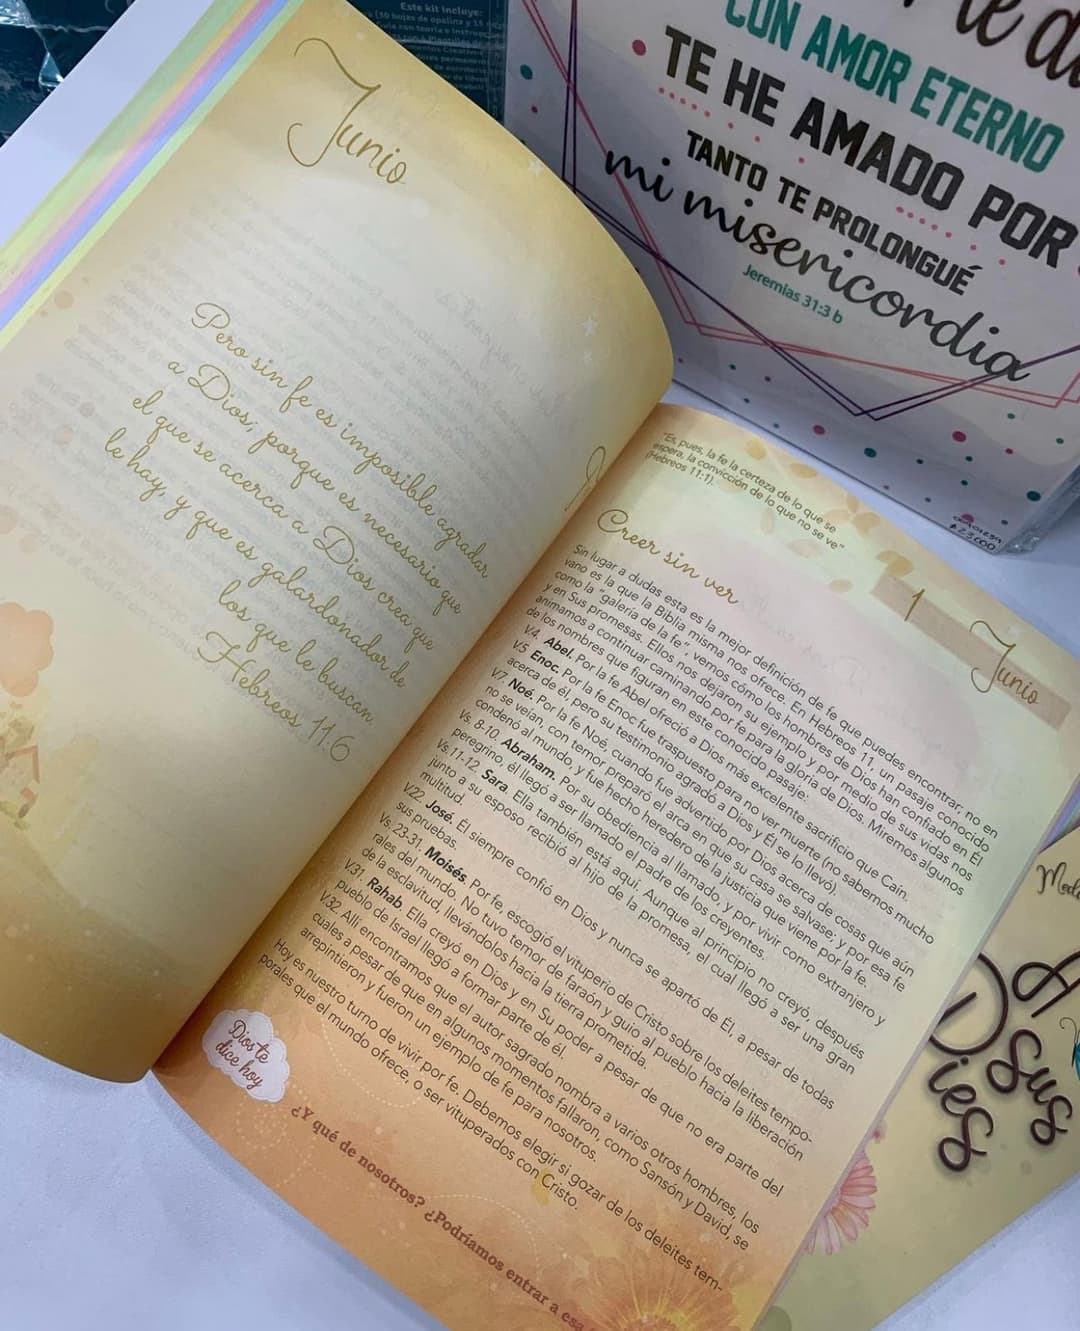 Este kit incluye:
Junio
Pero sin fe es imposible agradar
a Dios, porque es necesario que
el que se acerca a Dios crea que
le hay, y que es galardonador de
los que le buscan.
Hebreos 11:6
CON AMOR ETERNO
TE HE AMADO POR
TANTO TE PROLONGUÉ
mi misericordia
Jeremías 31:3 b
$23.000
"Es, pues, la fe la certeza de lo que se
espera, la convicción de lo que no se ve"
(Hebreos 11:1).
1
Junio
Creer sin ver
Sin lugar a dudas esta es la mejor definición de fe que puedes encontrar; no en
vano es la que la Biblia misma nos ofrece. En Hebreos 11, un pasaje conocido
como la "galería de la fe", vemos cómo los hombres de Dios han confiado en Él
y en Sus promesas. Ellos nos dejaron su ejemplo y por medio de sus vidas nos
animamos a continuar caminando por fe para la gloria de Dios. Miremos algunos
de los nombres que figuran en este conocido pasaje:
V.4 Abel. Por la fe Abel ofreció a Dios más excelente sacrificio que Caín.
V.5 Enoc. Por la fe Enoc fue traspuesto para no ver muerte (no sabemos mucho
acerca de él, pero su testimonio agradó a Dios y Él se lo llevó).
V.7 Noé. Por la fe Noé, cuando fue advertido por Dios acerca de cosas que aún
no se veían, con temor preparó el arca en que su casa se salvase; y por esa fe
condenó al mundo, y fue hecho heredero de la justicia que viene por la fe.
Vs. 8-10. Abraham. Por su obediencia al llamado, y por vivir como extranjero y
peregrino, él llegó a ser llamado el padre de los creyentes.
Vs. 11-12. Sara. Ella también está aquí. Aunque al principio no creyó, después
junto a su esposo recibió al hijo de la promesa, el cual llegó a ser una gran
multitud.
V.22 José. Él siempre confió en Dios y nunca se apartó de Él, a pesar de todas
sus pruebas.
Vs. 23-31. Moisés. Por fe, escogió el vituperio de Cristo sobre los deleites tempo-
rales del mundo. No tuvo temor de faraón y guio al pueblo hacia la liberación
de la esclavitud, llevándolos hacia la tierra prometida.
V.31. Rahab. Ella creyó en Dios y en Su poder a pesar de que no era parte del
pueblo de Israel llegó a formar parte de él.
V.32. Allí encontramos que el autor sagrado nombra a varios otros hombres, los
cuales a pesar de que en algunos momentos fallaron, como Sansón y David, se
arrepintieron y fueron un ejemplo de fe para nosotros.
Hoy es nuestro turno de vivir por fe. Debemos elegir si gozar de los deleites tem-
porales que el mundo ofrece, o ser vituperados con Cristo.
Dios te
dice hoy
¿Y qué de nosotros? ¿Podríamos entrar a esa
A
Sus
Pies